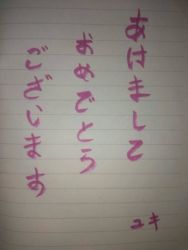 あけまして
おめでとう
ございます
ユキ